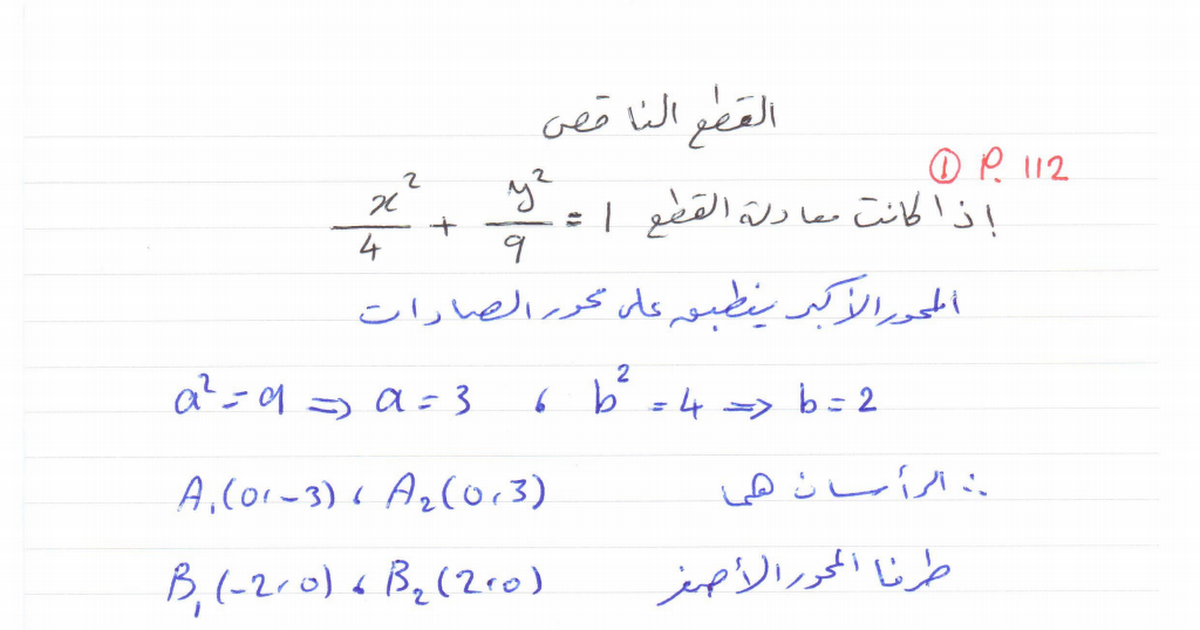 القطع الناقص
① P. 112
إذا كانت معادلة القطع x²/4 + y²/9 = 1
المحور الأكبر ينطبق على محور الصادات
a² = 9 ⇒ a = 3 ، b² = 4 ⇒ b = 2
∴ الرأسان هما A₁(0، -3) ، A₂(0، 3)
طرفا المحور الأصغر B₁(-2، 0) ، B₂(2، 0)